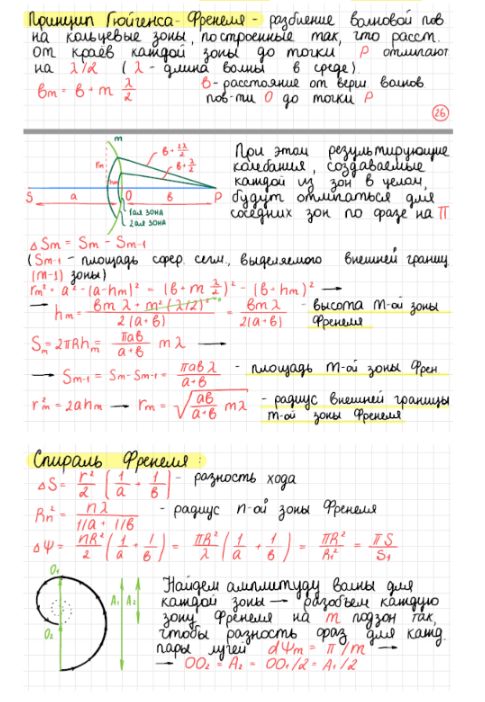 Принцип Гюйгенса-Френеля - разбиение волновой пов
на кольцевые зоны, построенные так, что расст.
от краёв каждой зоны до точки P отличают
на λ/2 (λ - длина волны в среде).
bm = b + m λ/2
b - расстояние от верш волнов
пов-ти O до точки P
26
m
b + 2λ/2
b + λ/2
rm
hm
S a O b P
1ая зона
2ая зона
При этом результирующие
колебания, создаваемые
каждой из зон в целом,
будут отличаться для
соседних зон по фазе на π
ΔSm = Sm - Sm-1
(Sm-1 - площадь сфер. сегм., выделяемого внешней границ
(m-1) зоны)
rm² = a² - (a-hm)² = (b + m λ/2)² - (b + hm)² →
→ hm = (bmλ + m²(λ/2)²)/(2(a+b)) = bmλ/(2(a+b)) - высота m-ой зоны
Френеля
Sm = 2πRhm = πab/(a+b) mλ →
→ Sm-1 = Sm - Sm-1 = πabλ/(a+b) - площадь m-ой зоны Френ
rm² = 2ahm → rm = √(ab/(a+b) mλ) - радиус внешней границы
m-ой зоны Френеля
Спираль Френеля:
ΔS = r²/2 (1/a + 1/b) - разность хода
Rn² = nλ/(1/a + 1/b) - радиус n-ой зоны Френеля
ΔΨ = nR²/2 (1/a + 1/b) = πR²/λ (1/a + 1/b) = πR²/R1² = πS/S1
O1
O2
A1
A2
Найдем амплитуду волны для
каждой зоны → разобьем каждую
зону Френеля на m подзон так,
чтобы разность фаз для кажд.
пары лучей dΨm = π/m →
→ OO2 = A2 = OO1/2 = A1/2